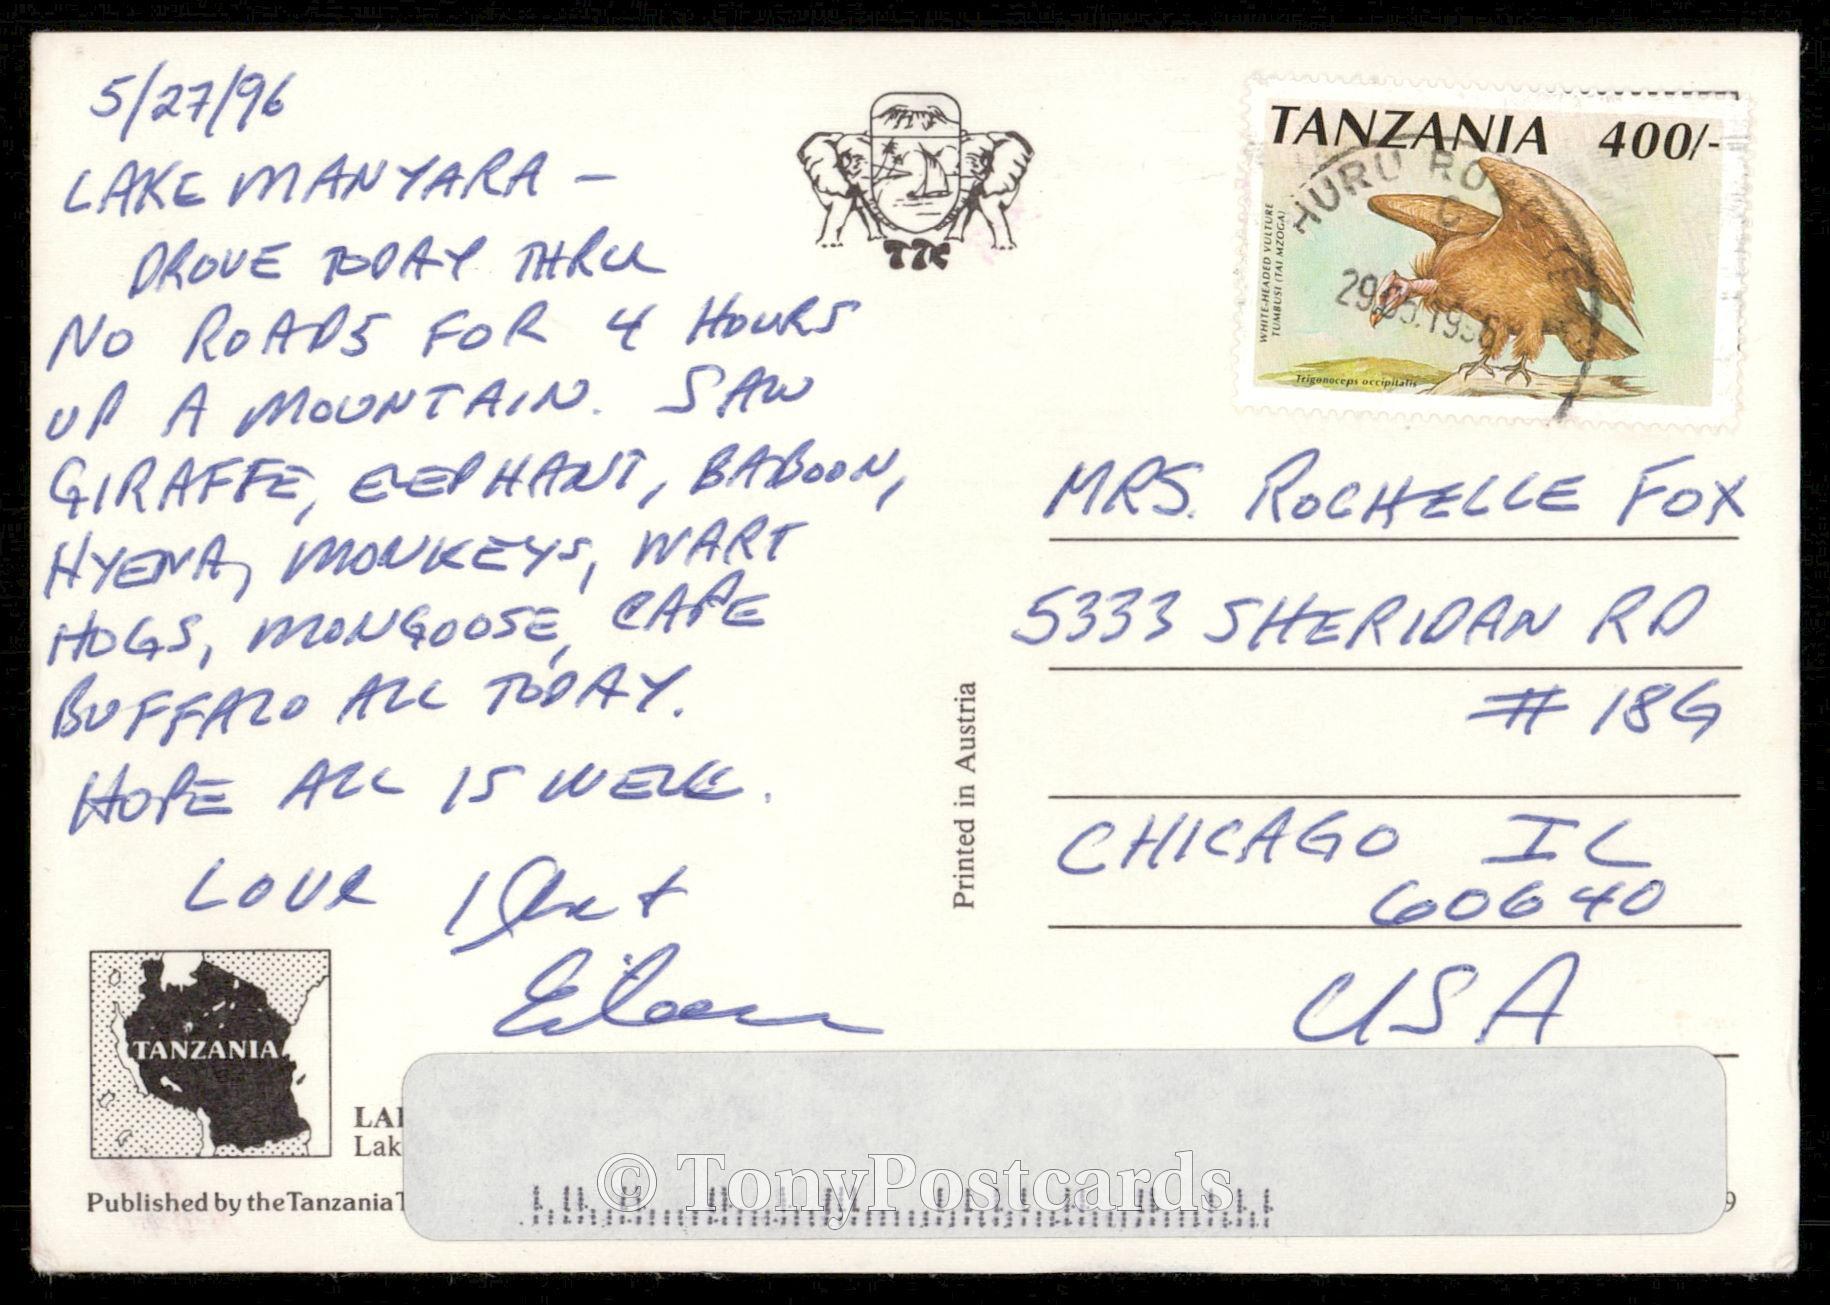 5/27/96
LAKE MANYARA —
DROVE TODAY THRU
NO ROADS FOR 4 HOURS
UP A MOUNTAIN. SAW
GIRAFFE, ELEPHANT, BABOON,
HYENA, MONKEYS, WART
HOGS, MONGOOSE, CAPE
BUFFALO ALL TODAY.
HOPE ALL IS WELL.
LOVE
Eileen
TANZANIA
LA
Lak
Published by the Tanzania T
Printed in Austria
TTC
TANZANIA 400/-
WHITE-HEADED VULTURE
TUMBUSI (TAI MZOGA)
Trigonoceps occipitalis
HURU RO
29.05.1996
MRS. ROCHELLE FOX
5333 SHERIDAN RD
# 18G
CHICAGO IL
60640
USA
© TonyPostcards
9